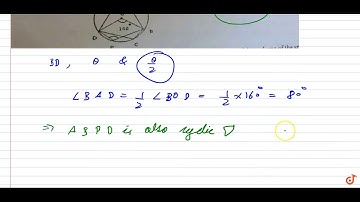 160°
D
B
P
C
BD, θ & θ/2
∠BAD = 1/2 ∠BOD = 1/2 × 160° = 80°
⇒ ABPD is also cyclic